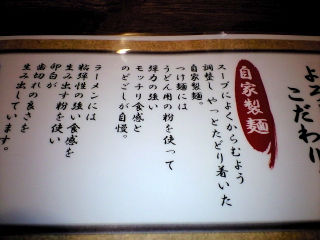 こだわり
自家製麺
スープによくからむよう
調整し、やっとたどり着いた
自家製麺。
つけ麺には
うどん用の粉を使って
弾力の強い
モッチリ食感と
のどごしが自慢。
ラーメンには
粘弾性の強い食感を
生み出す粉を使い
卵白が
歯切れの良さを
生み出しています。